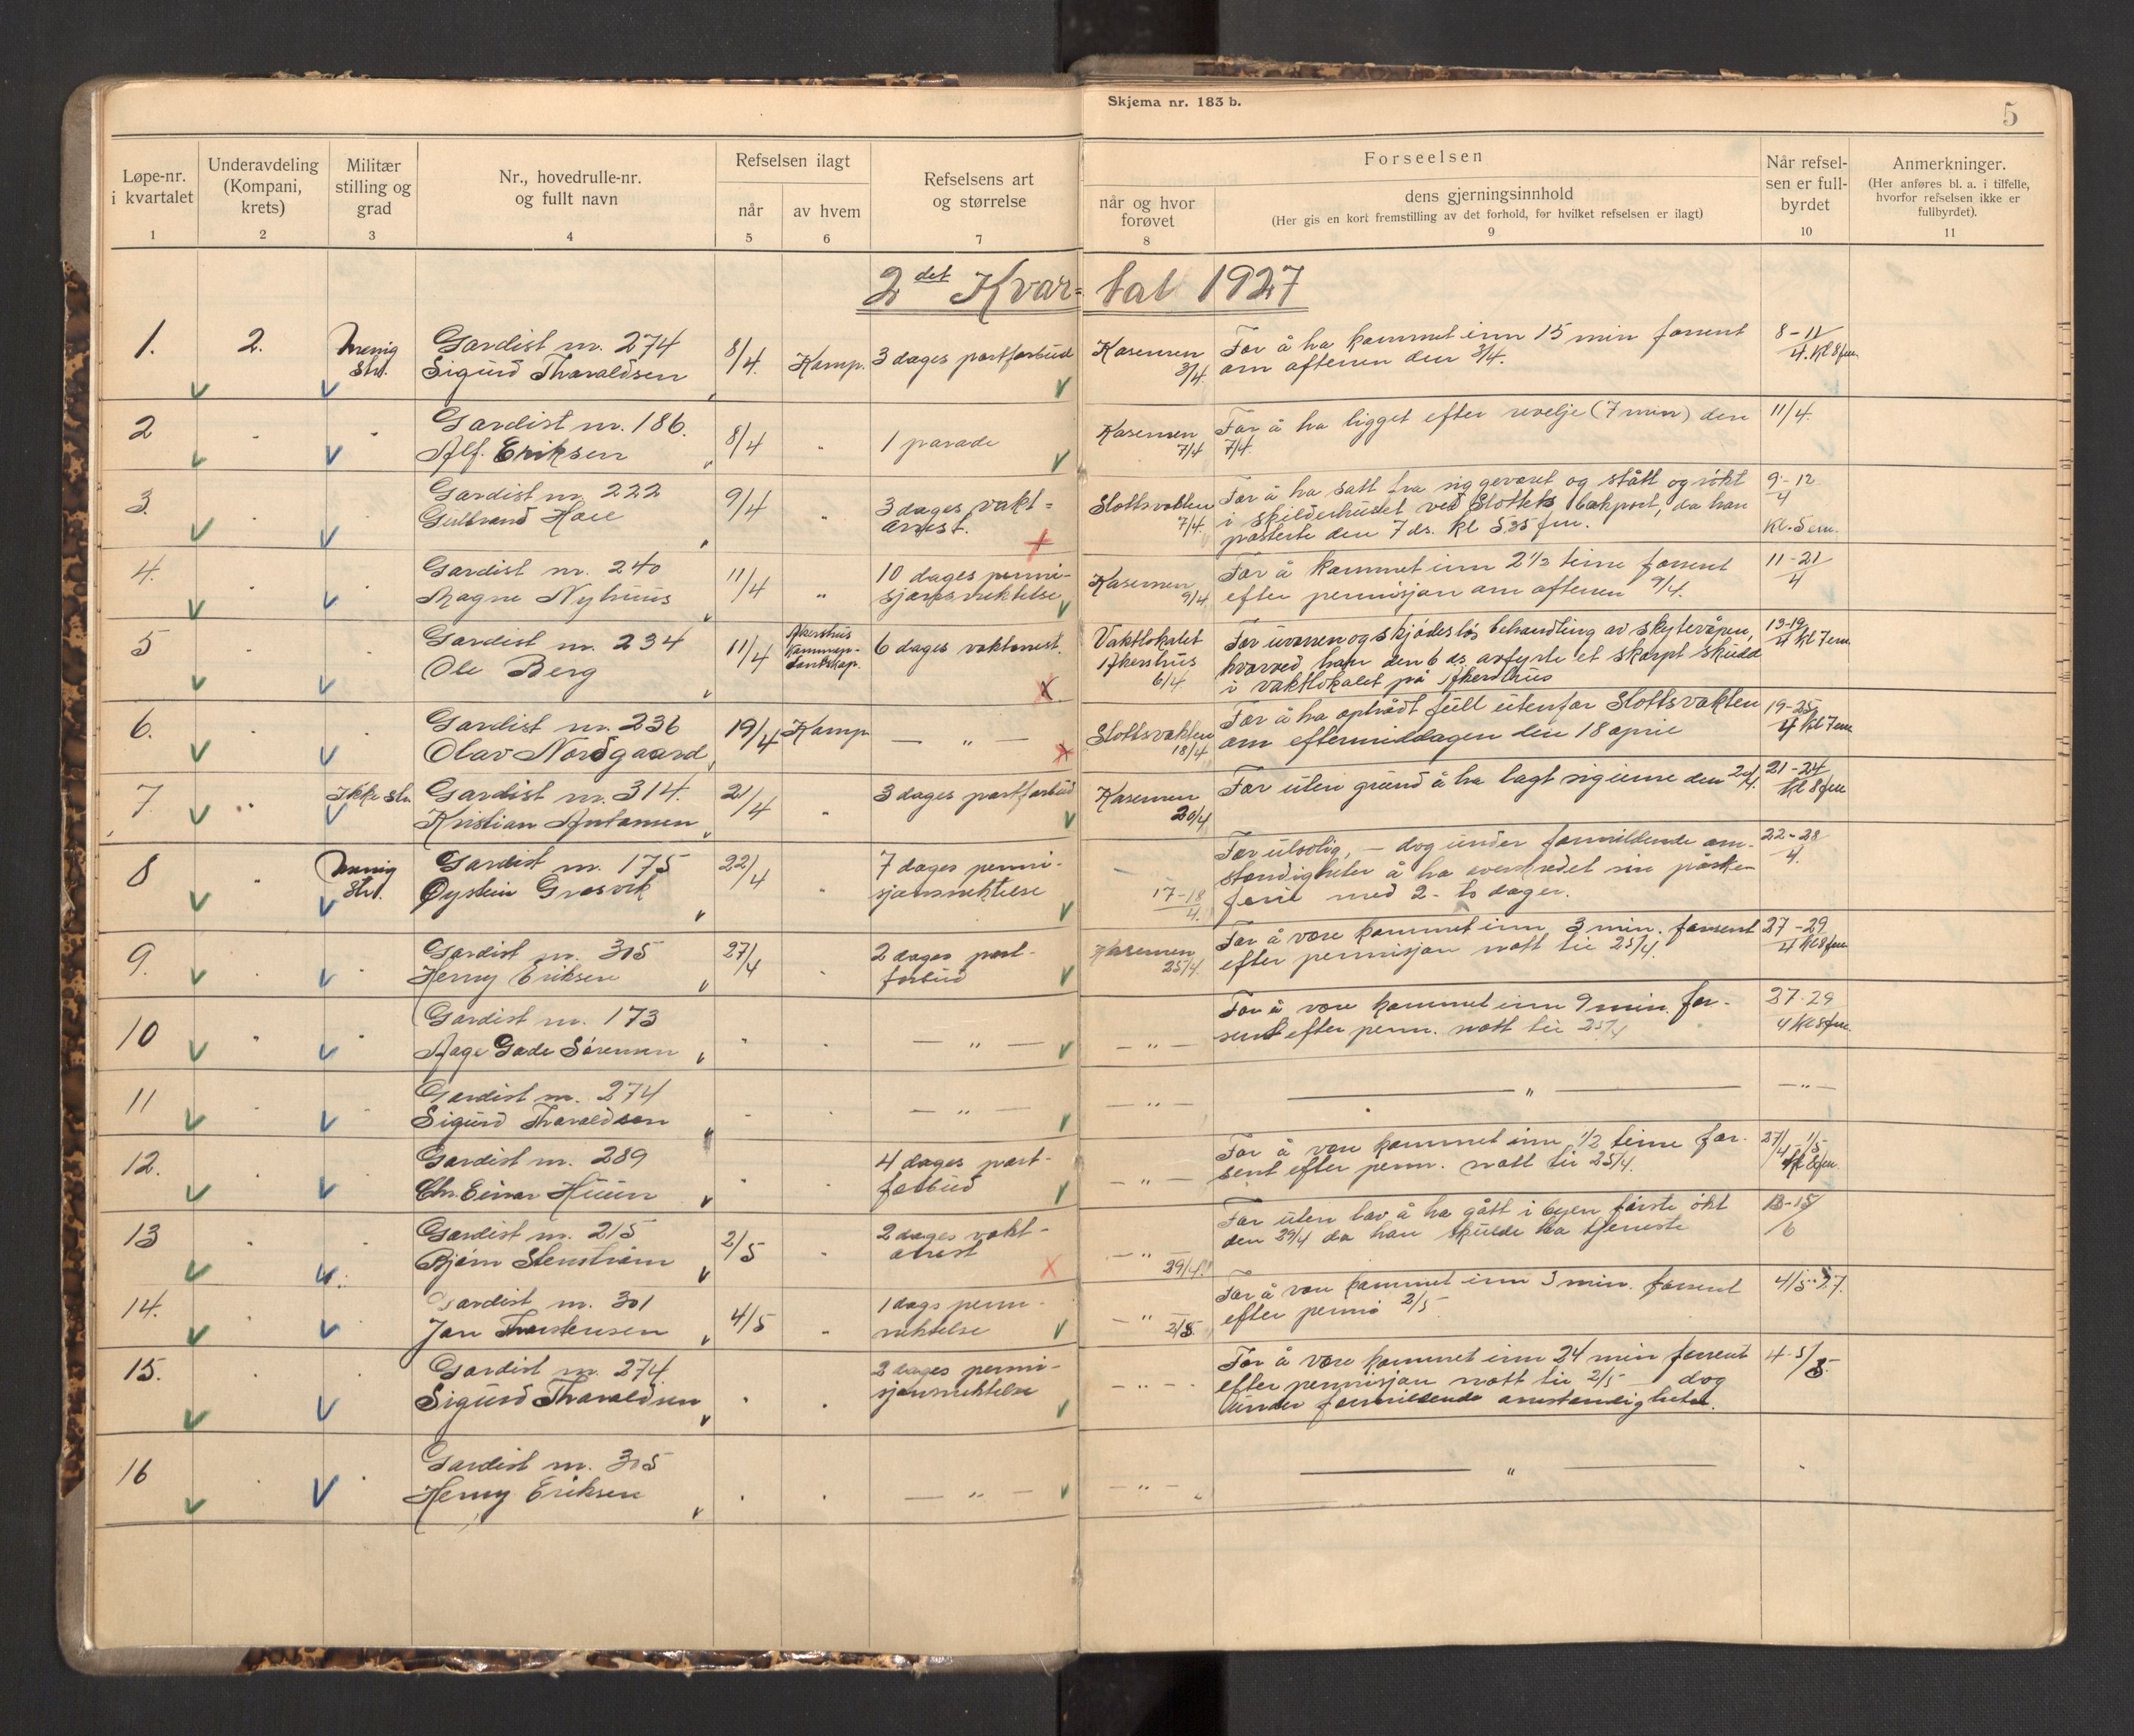 Skjema nr. 183 b.
5
Løpe-nr. i kvartalet
1
Underavdeling (Kompani, krets)
2
Militær stilling og grad
3
Nr., hovedrulle-nr. og fullt navn
4
Refselsen ilagt
når
5
av hvem
6
Refselsens art og størrelse
7
Forseelsen
når og hvor forøvet
8
dens gjerningsinnhold
(Her gis en kort fremstilling av det forhold, for hvilket refselsen er ilagt)
9
Når refselsen er fullbyrdet
10
Anmerkninger.
(Her anføres bl. a. i tilfelle, hvorfor refselsen ikke er fullbyrdet).
11
2det Kvar= tal 1927
1. 2. Menig Str. Gardist nr. 274 8/4. Komp. 3 dages portforbud Kasernen 3/4. For å ha kommet inn 15 min forsent 8-11/4. Kl 8 fm.
Sigurd Thoraldsen om aftenen den 3/4.
2 " " Gardist nr. 186. 8/4 " 1 parade Kasernen 7/4 For å ha ligget efter revelje (7 min) den 11/4.
Alf. Eriksen 7/4.
3. Gardist nr. 222 9/4 " 3 dages vakt= Slottsvakten 7/4. For å ha satt fra sig geværet og stått og røkt 9-12/4
Gulbrand Hoel arrest. i skilderhuset ved Slottets bakport, da han
posterte den 7 ds. kl 5 35 fm. Kl. 5 em.
4. " " Gardist nr. 240 11/4 " 10 dages permi- Kasernen 9/4 For å kommet inn 2 1/2 time forsent 11-21/4
Magne Nyhuus sjonsnektelse efter permisjon om aftenen 9/4.
5 " " Gardist nr. 234 11/4 Akershus kommandantskap. 6 dages vaktarrest. Vaktlokalet Akershus 6/4 For uvøren og skjødesløs behandling av skytevåpen, 13-19/4 Kl 7 em
Ole Berg hvorved han den 6 ds. avfyrte et skarpt skudd
i vaktlokalet på Akershus
6. " " Gardist nr. 236 19/4 Komp — " — Slottsvakten 18/4 For å ha optrådt full utenfor Slottsvakten 19-25/4 Kl 7 em
Olav Nordgaard om eftermiddagen den 18 april
7. " Ikke str. Gardist nr. 314. 21/4 " 3 dages portforbud Kasernen 20/4 For uten grund å ha lagt sig inne den 20/4. 21-24 Kl 8 fm
Kristian Antonsen
8 " Menig Str. Gardist nr. 175 22/4 " 7 dages permi- 17-18/4. For ulovlig, — dog under formildende om- 22-28/4.
Øystein Grøsvik sjonsnektelse stendigheter å ha overskredet sin påske-
ferie med 2- to dager.
9. " " Gardist nr. 305 27/4 " 2 dages port- Kasernen 25/4 For å være kommet inn 3 min. forsent 27-29/4 Kl 8 fm
Henry Eriksen forbud efter permisjon natt til 25/4.
10 " " Gardist nr. 173 " " — " — — " — For å være kommet inn 9 min. for- 27-29/4 Kl 8 fm.
Aage Gade Sørensen sent efter perm. natt til 25/4
11 " " Gardist nr. 274 " " — " — — " — — " — — " —
Sigurd Thoraldsen
12. " " Gardist nr. 289 " " 4 dages port- — " — For å være kommet inn 1/2 time for- 27/4-1/5 Kl 8 fm.
Chr. Einar Huun forbud sent efter perm. natt til 25/4.
13 " " Gardist nr. 215 2/5 " 2 dages vakt- — " — 29/4. For uten lov å ha gått i byen første økt 13-15/6
Bjørn Stenstrøm arrest den 29/4 da han skulde ha tjeneste
14. " " Gardist nr. 301 4/5 " 1 dags perm- — " — 2/5. For å være kommet inn 3 min. forsent 4/5-27.
Jon Thorstensen nektelse efter permis 2/5
15. " " Gardist nr. 274 " " 2 dages permi- — " — For å være kommet inn 24 min forsent 4-5/5.
Sigurd Thoraldsen sjonsnektelse efter permisjon natt til 2/5 dog
under formildende omstendigheter.
16 " " Gardist nr. 305 " " — " — — " — — " — "
Henry Eriksen